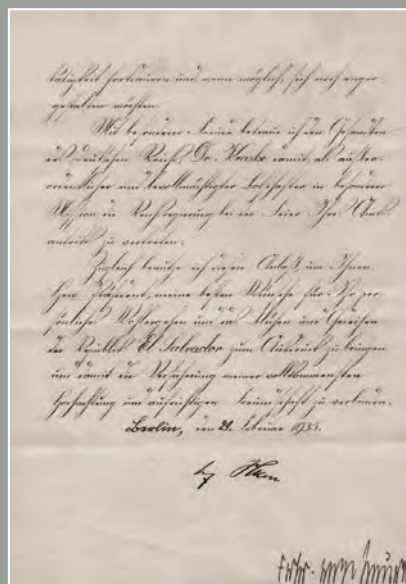 tätigkeit fortdauern und wenn möglich, sich noch enger
gestalten möchten.
Mit besonderer Freude betraue ich den Gesandten
des Deutschen Reichs, Dr. Kraske damit, als außer-
ordentlicher und bevollmächtigter Botschafter in besonderer
Mission die Reichsregierung bei der Feier Ihres Amts-
antritts zu vertreten.
Zugleich benutze ich diesen Anlaß, um Ihnen,
Herr Präsident, meine besten Wünsche für Ihr per-
sönliches Wohlergehen und das Blühen und Gedeihen
der Republik El Salvador zum Ausdruck zu bringen
und damit die Versicherung meiner vollkommensten
Hochachtung und aufrichtigen Freundschaft zu verbinden.
Berlin, den 21. Februar 1935.
Frhr. von